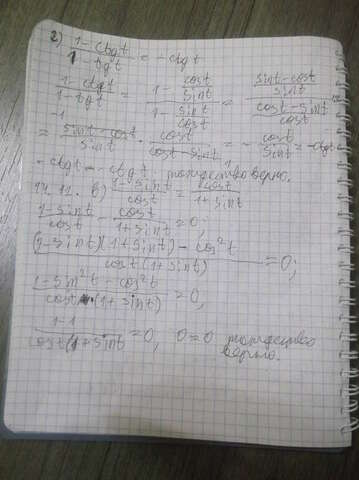 г) (1 - ctg t)/(1 - tg t) = -ctg t
(1 - ctg t)/(1 - tg t) = (1 - cost/sint)/(1 - sint/cost) = ((sint - cost)/sint)/((cost - sint)/cost) =
= (sint - cost)/sint · cost/(cost - sint) = - cost/sint = -ctg t
-ctg t = -ctg t; тождество верно.
14.11. в) (1 - sint)/cost = cost/(1 + sint)
(1 - sint)/cost - cost/(1 + sint) = 0;
((1 - sint)(1 + sint) - cos²t)/(cost(1 + sint)) = 0;
(1 - sin²t - cos²t)/(cost(1 + sint)) = 0;
(1 - 1)/(cost(1 + sint) = 0, 0 = 0 тождество
верно.